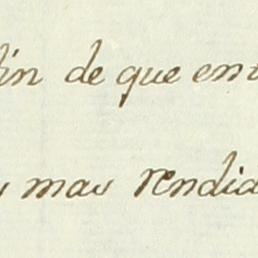 fin de que ent
s mas rendid